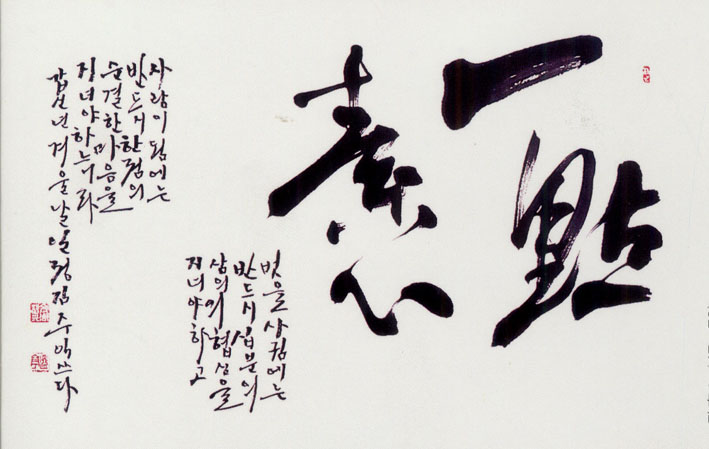 一點
素心
벗을 사귐에는
반드시 십분의
삼의 의협심을
지녀야하고
사람이 됨에는
반드시 한점의
순결한 마음을
지녀야하느니라
갑신년 겨울날 일정 김주익 쓰다